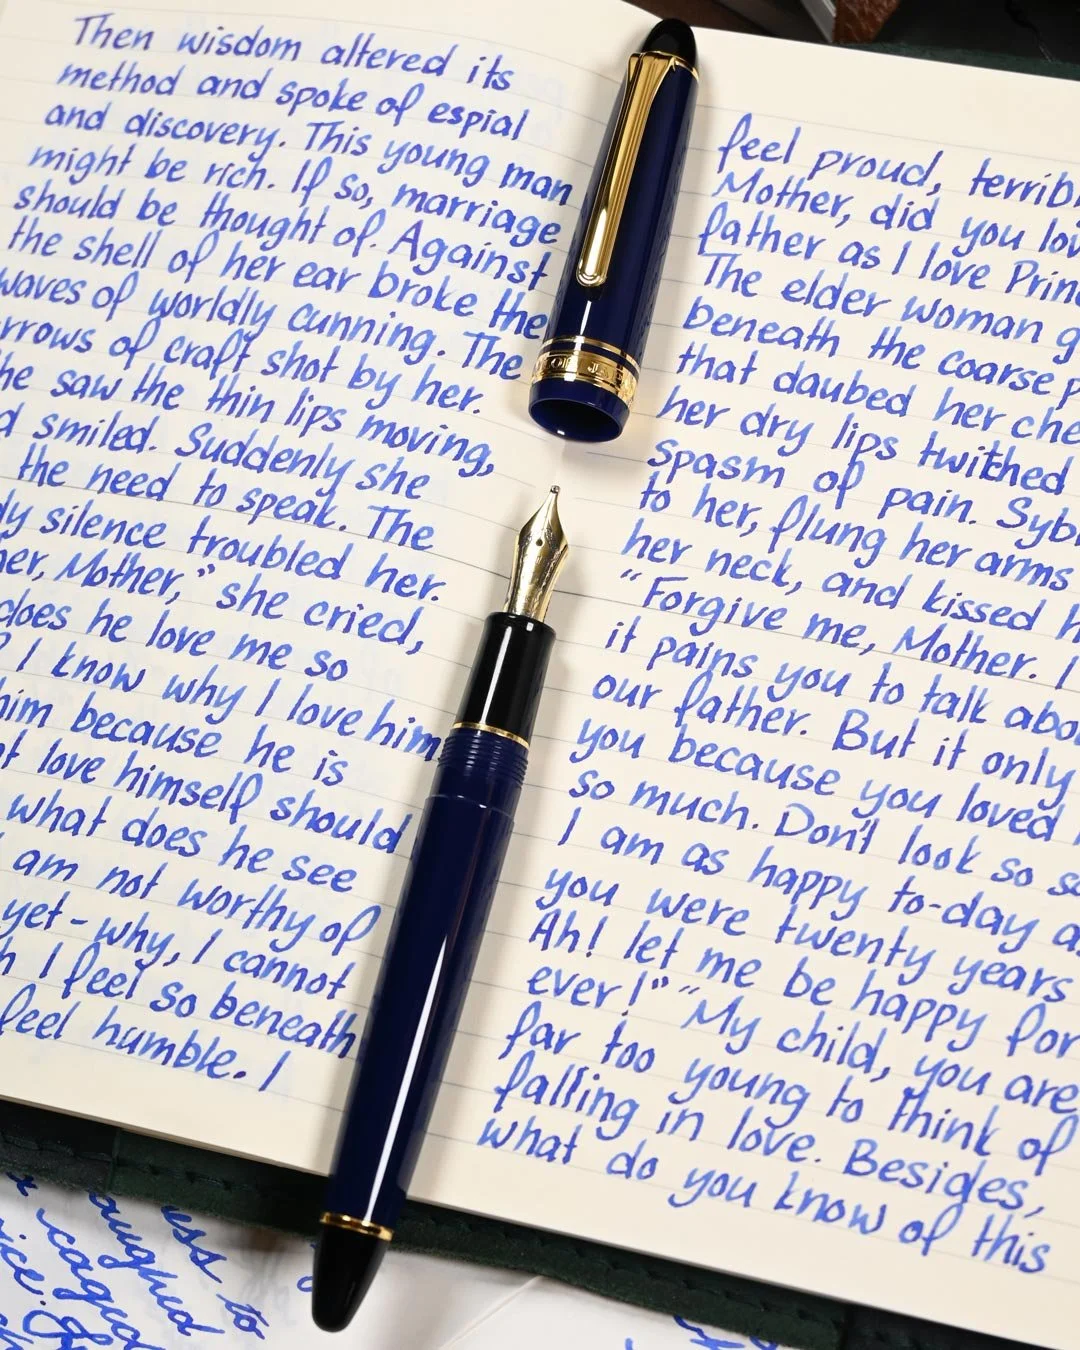 Then wisdom altered its
method and spoke of espial
and discovery. This young man
might be rich. If so, marriage
should be thought of. Against
the shell of her ear broke the
waves of worldly cunning. The
rrows of craft shot by her.
he saw the thin lips moving,
d smiled. Suddenly she
the need to speak. The
dy silence troubled her.
her, Mother," she cried,
does he love me so
I know why I love him
him because he is
t love himself should
what does he see
am not worthy of
yet - why, I cannot
h I feel so beneath
feel humble. I
feel proud, terrib
Mother, did you lov
father as I love Prin
The elder woman g
beneath the coarse p
that daubed her che
her dry lips twitched
spasm of pain. Syb
to her, flung her arms
her neck, and kissed h
"Forgive me, Mother. I
it pains you to talk abo
our father. But it only
you because you loved h
so much. Don't look so s
I am as happy to-day a
you were twenty years
Ah! let me be happy for
ever!" "My child, you are
far too young to think of
falling in love. Besides,
what do you know of this
OF JA
ess to
aughed